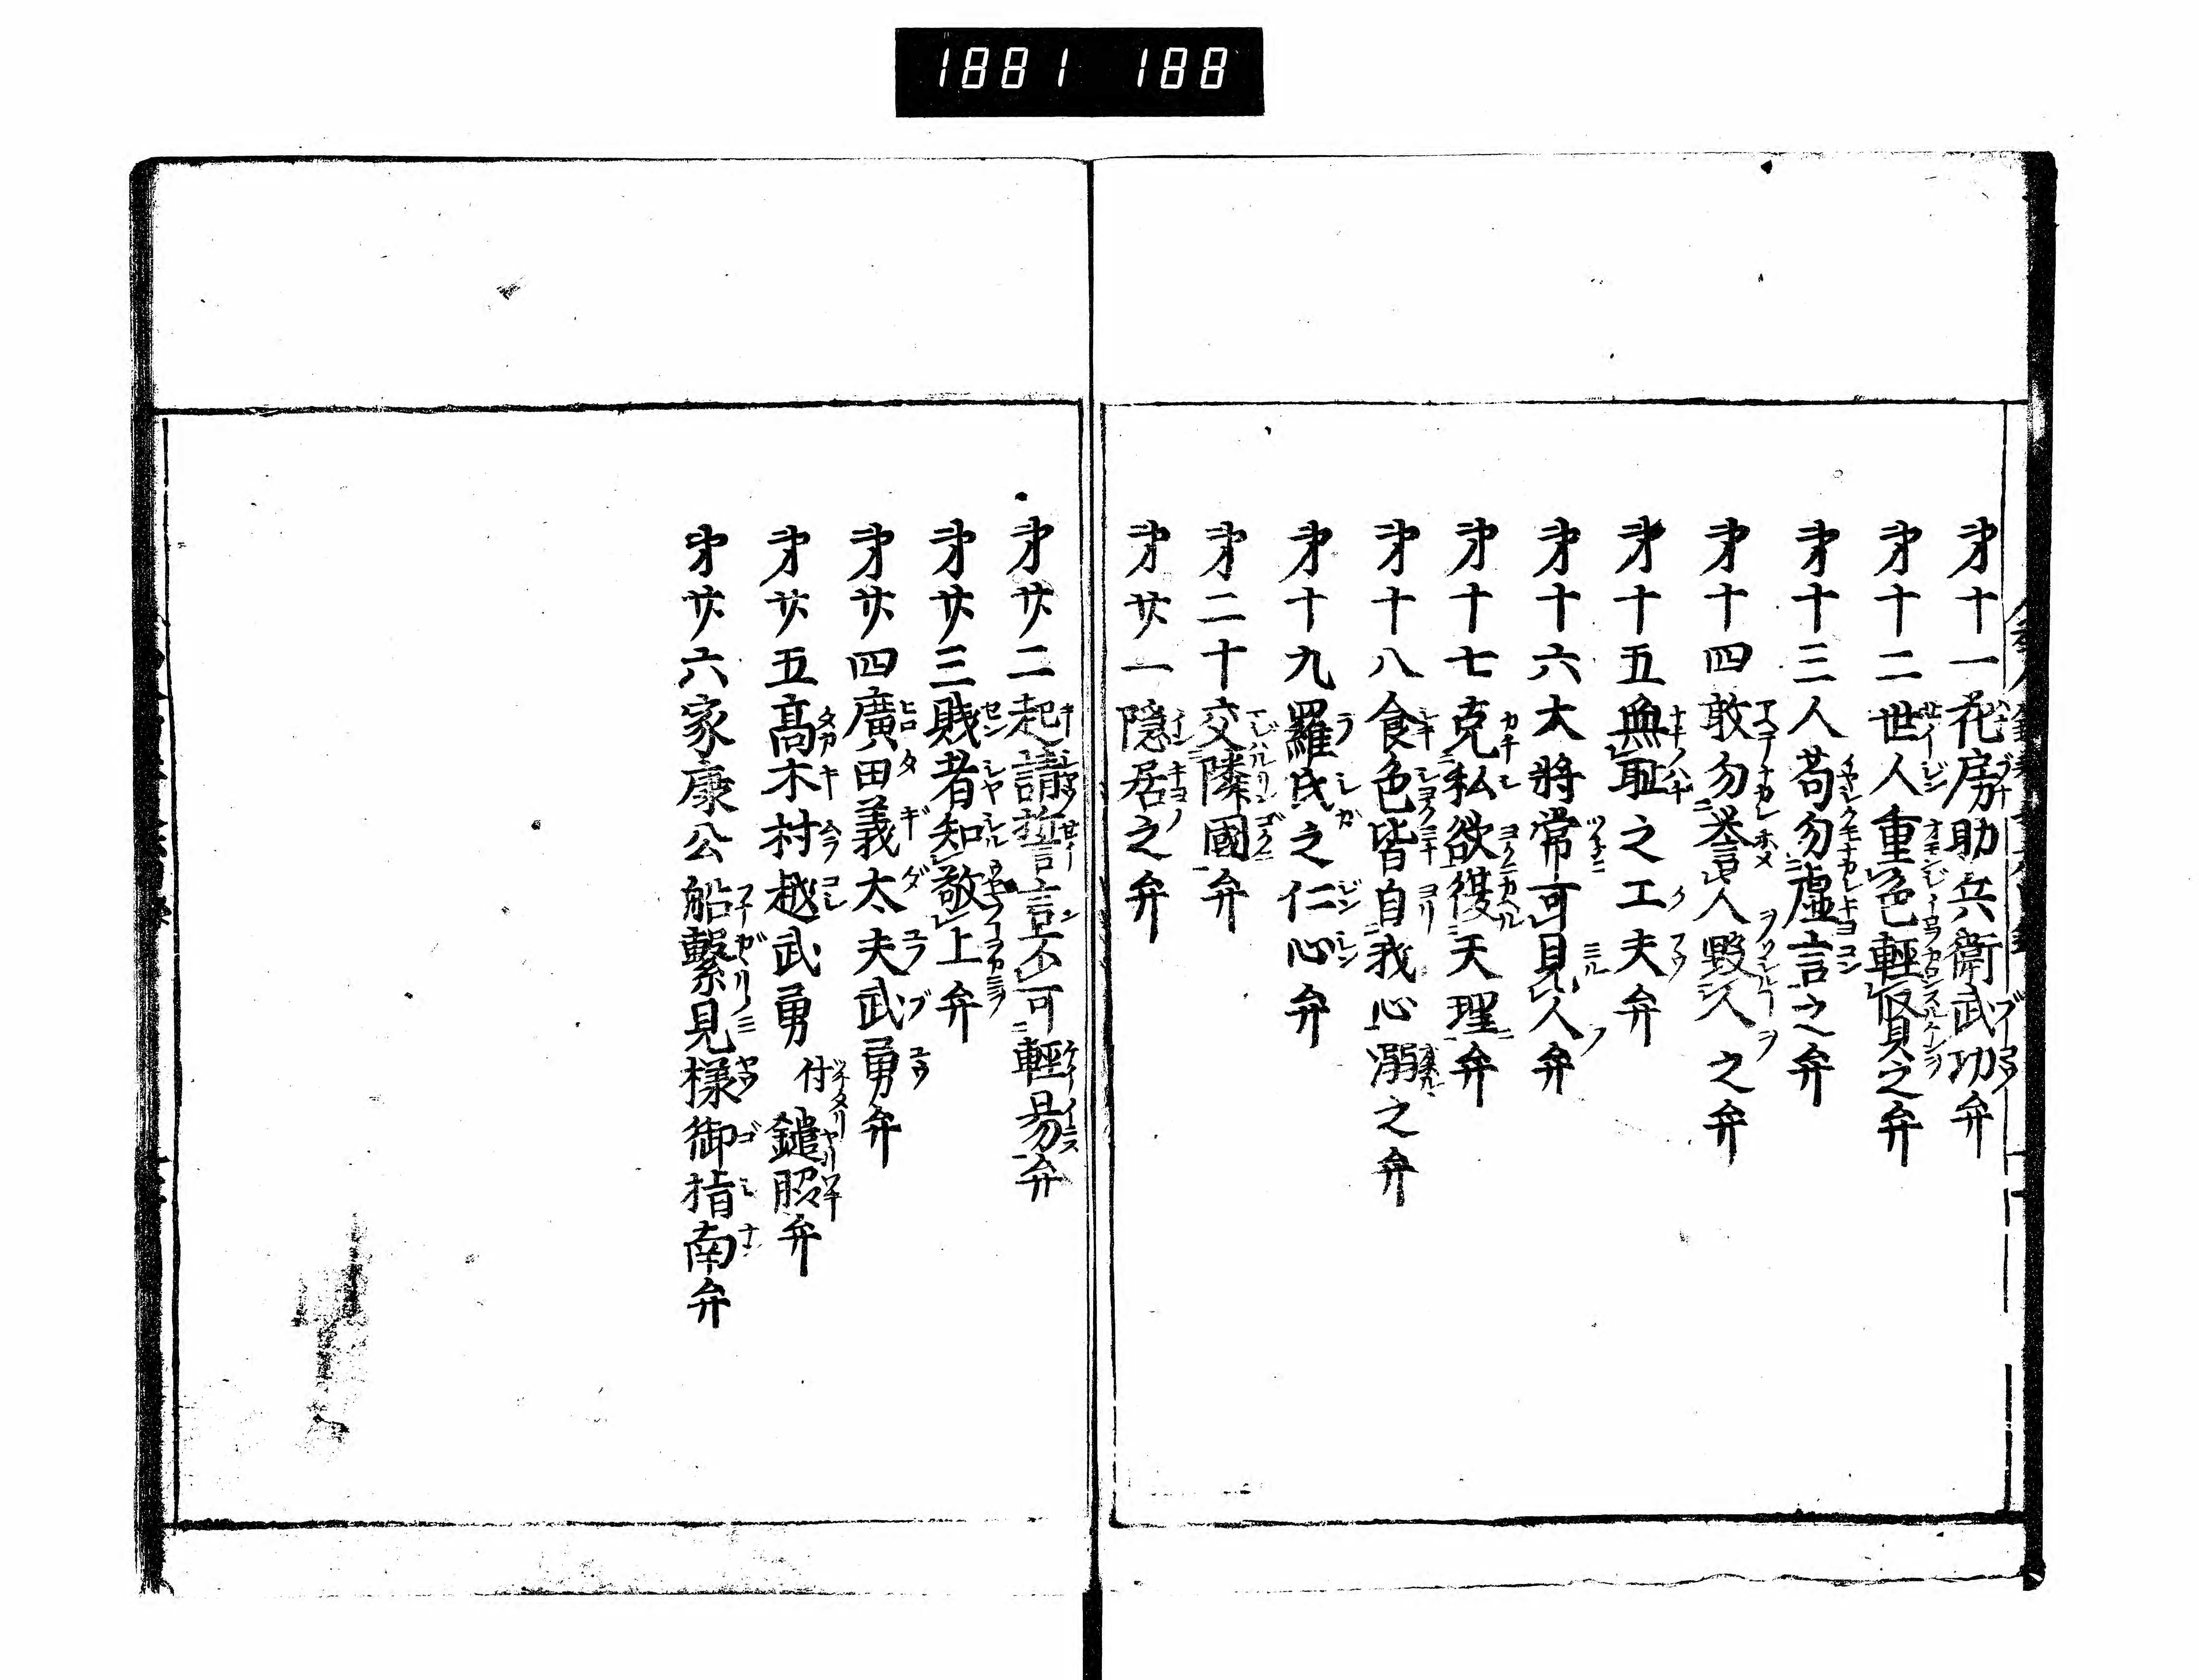 1881 188
第十一花房助兵衛武功弁
第十二世人重色輕賢之弁
第十三人苟勿虚言之弁
第十四敢勿誉人毀人之弁
第十五無恥之工夫弁
第十六大將常可見人弁
第十七克私欲復天理弁
第十八食色皆自我心溺之弁
第十九羅氏之仁心弁
第二十交隣國弁
第廿一隠居之弁
第廿二起請誓言不可輕易弁
第廿三賎者知敬上弁
第廿四廣田義太夫武勇弁
第廿五髙木村越武勇付鑓脇弁
第廿六家康公船繋見様御指南弁